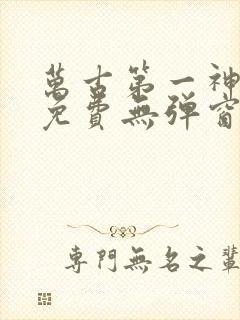 萬古第一神
免費無彈窗
專門無名之輩